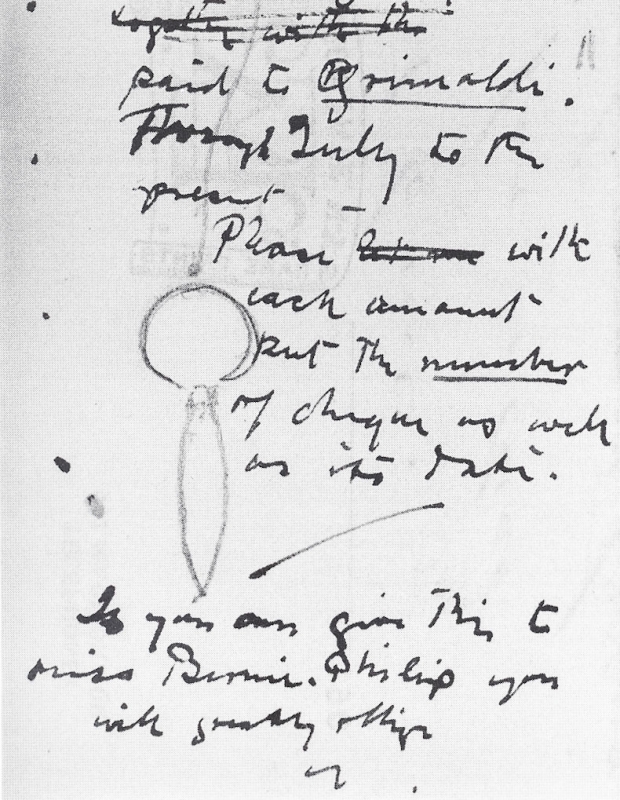 together with the
paid to Grimaldi.
Through July to the
present —
Please let me with
each amount
put the number
of cheque as well
as its date.
If you can give this to
miss Birnie. Philip you
will greatly oblige